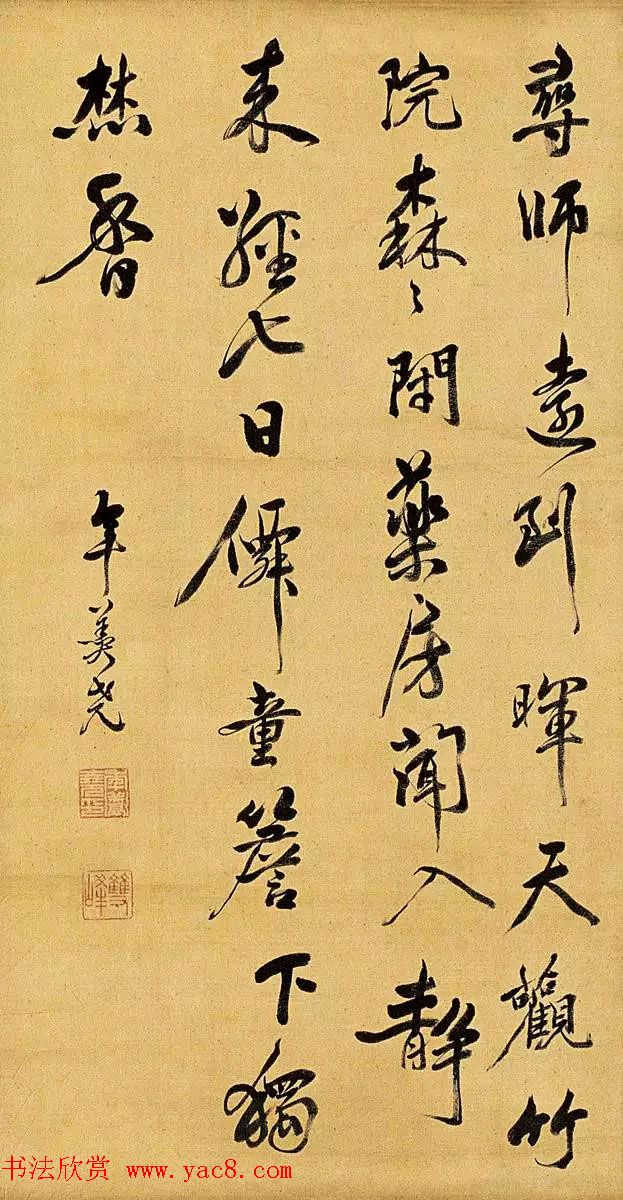 尋師遠到暉天觀竹
院森〻閑藥房聞入靜
来經七日僊童簷下獨
焚香
年羹尧
年羹堯印
雙峰
书法欣赏 www.yac8.com